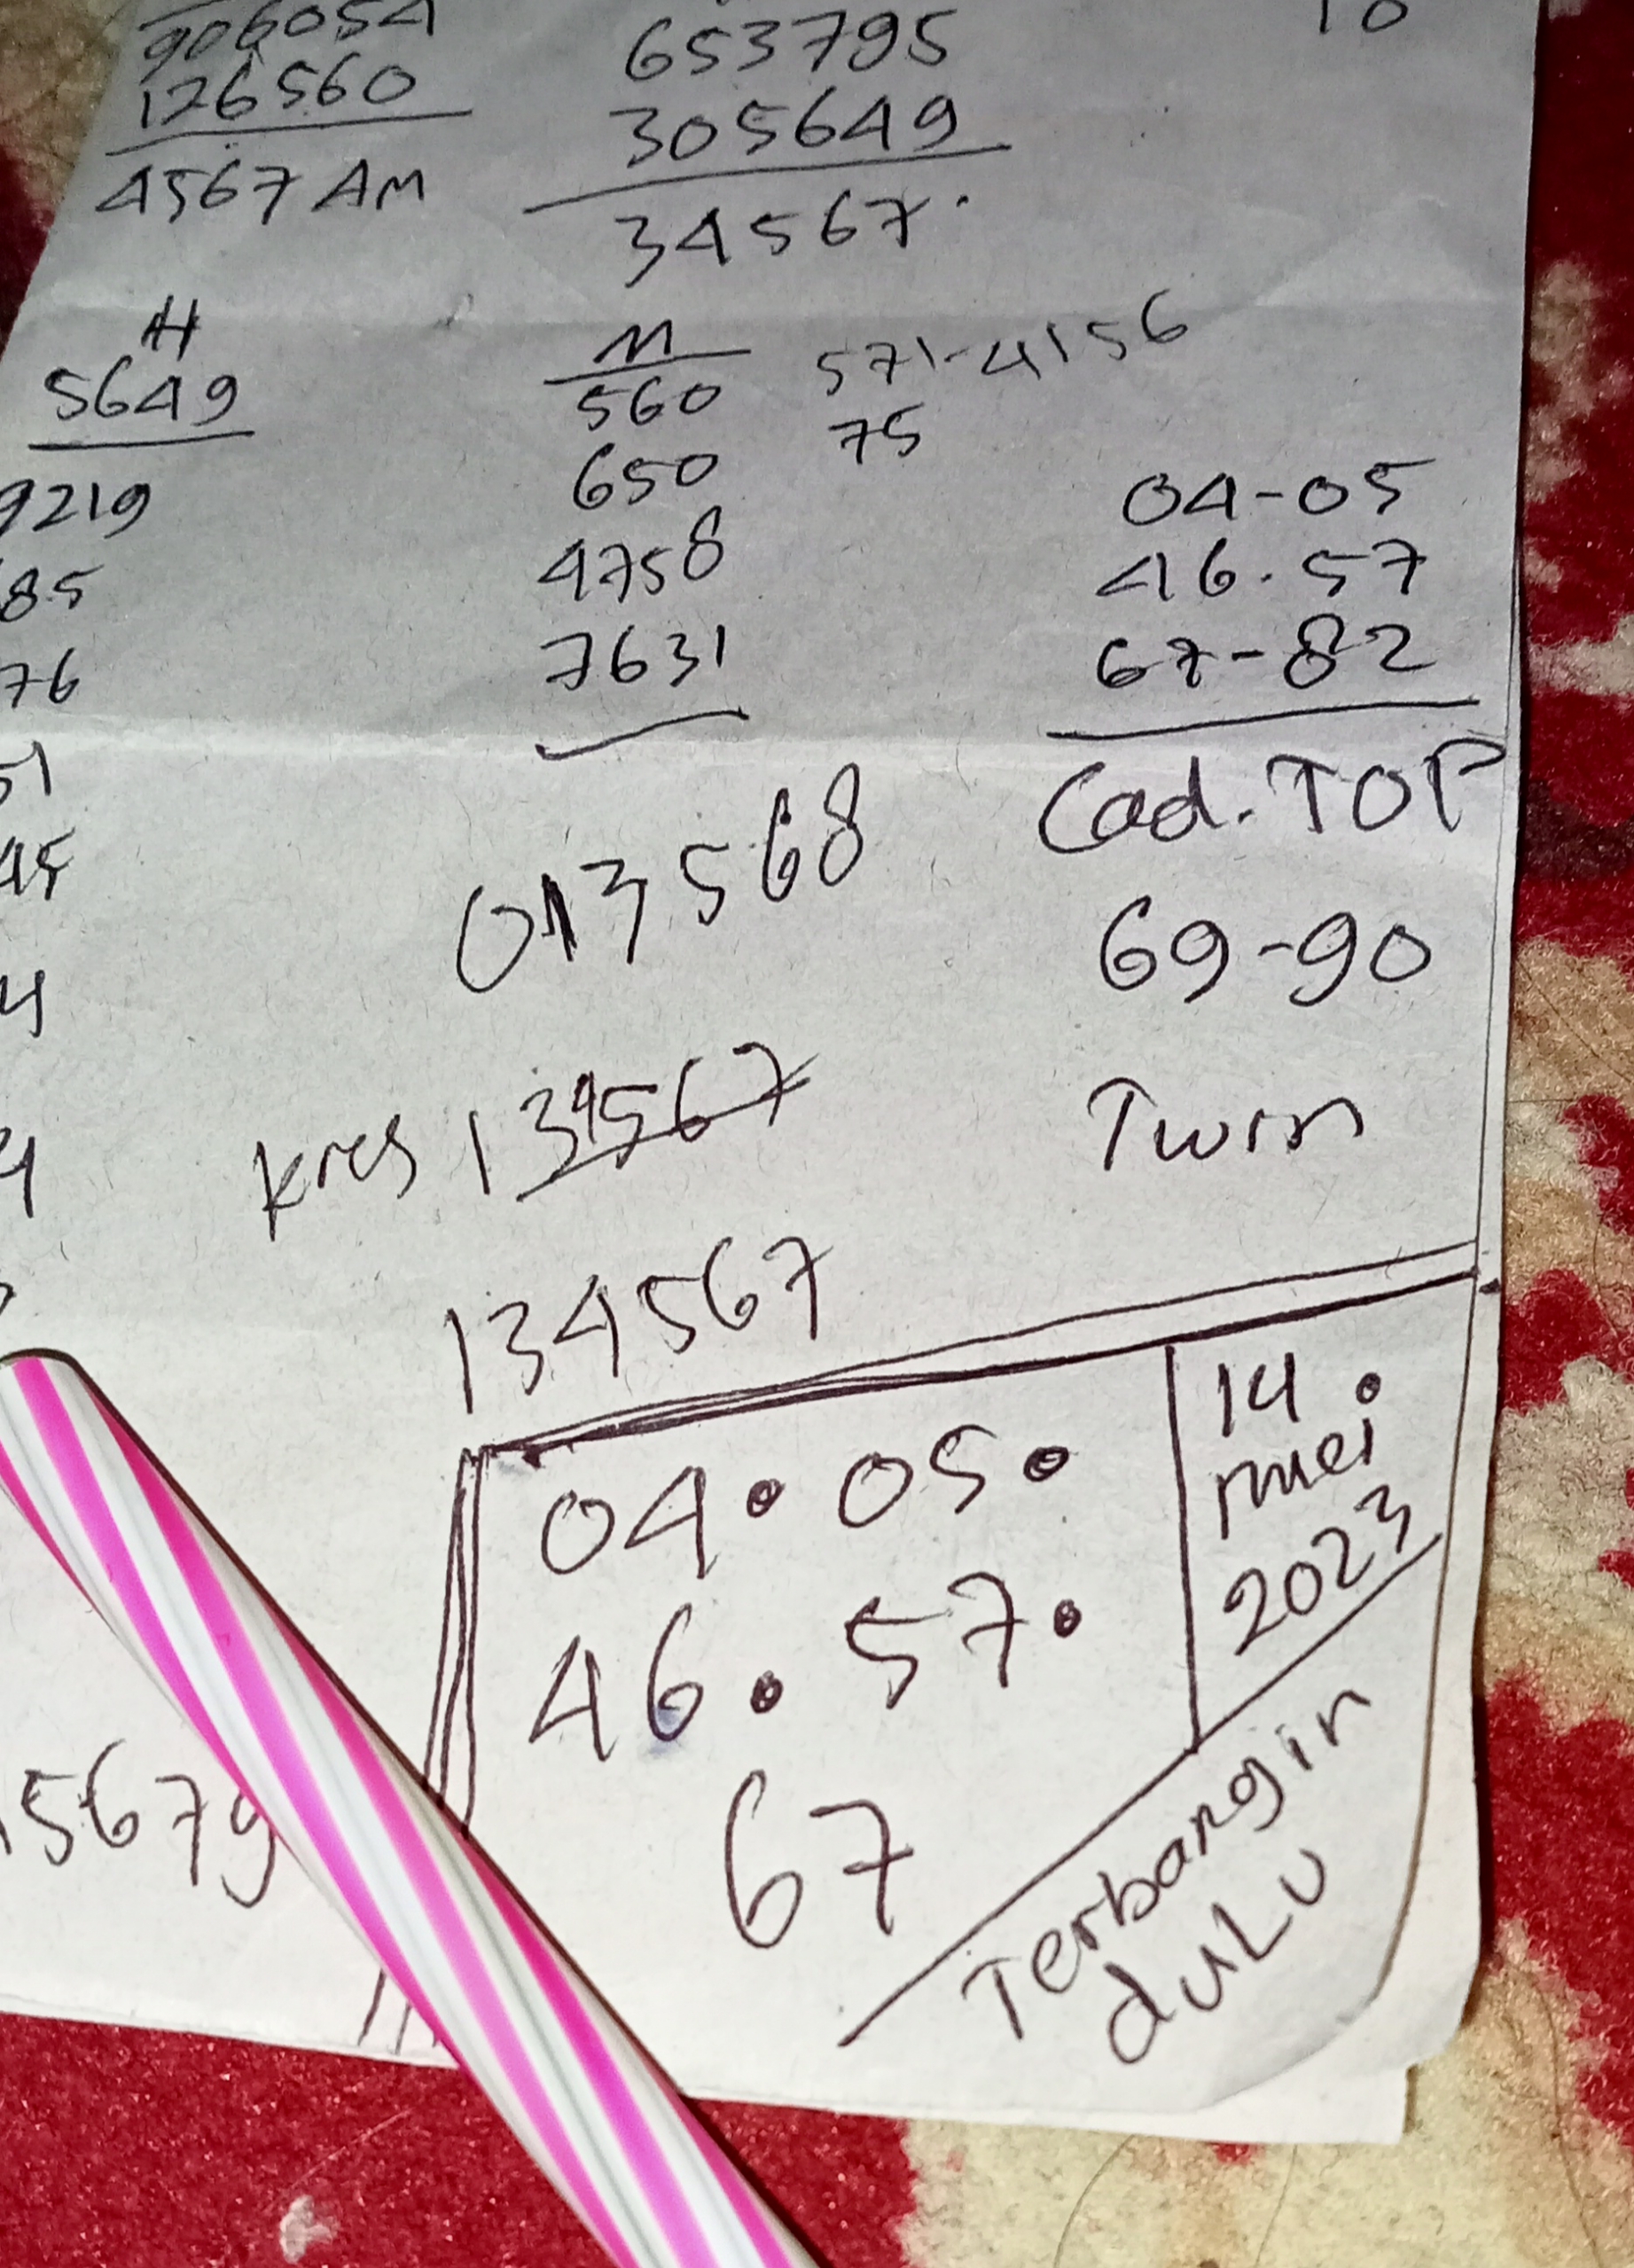 906054
126560
4567 AM
653795
305649
34567.
10
H
5649
9219
85
76
51
45
4
4
M
560
650
4758
7631
571-4156
75
04-05
46.57
67-82
Cad. TOP
69-90
Twin
013568
kres 134567
134567
04 • 05 •
46 • 57 •
67
14
mei
2023
Terbangin
duLu
5679